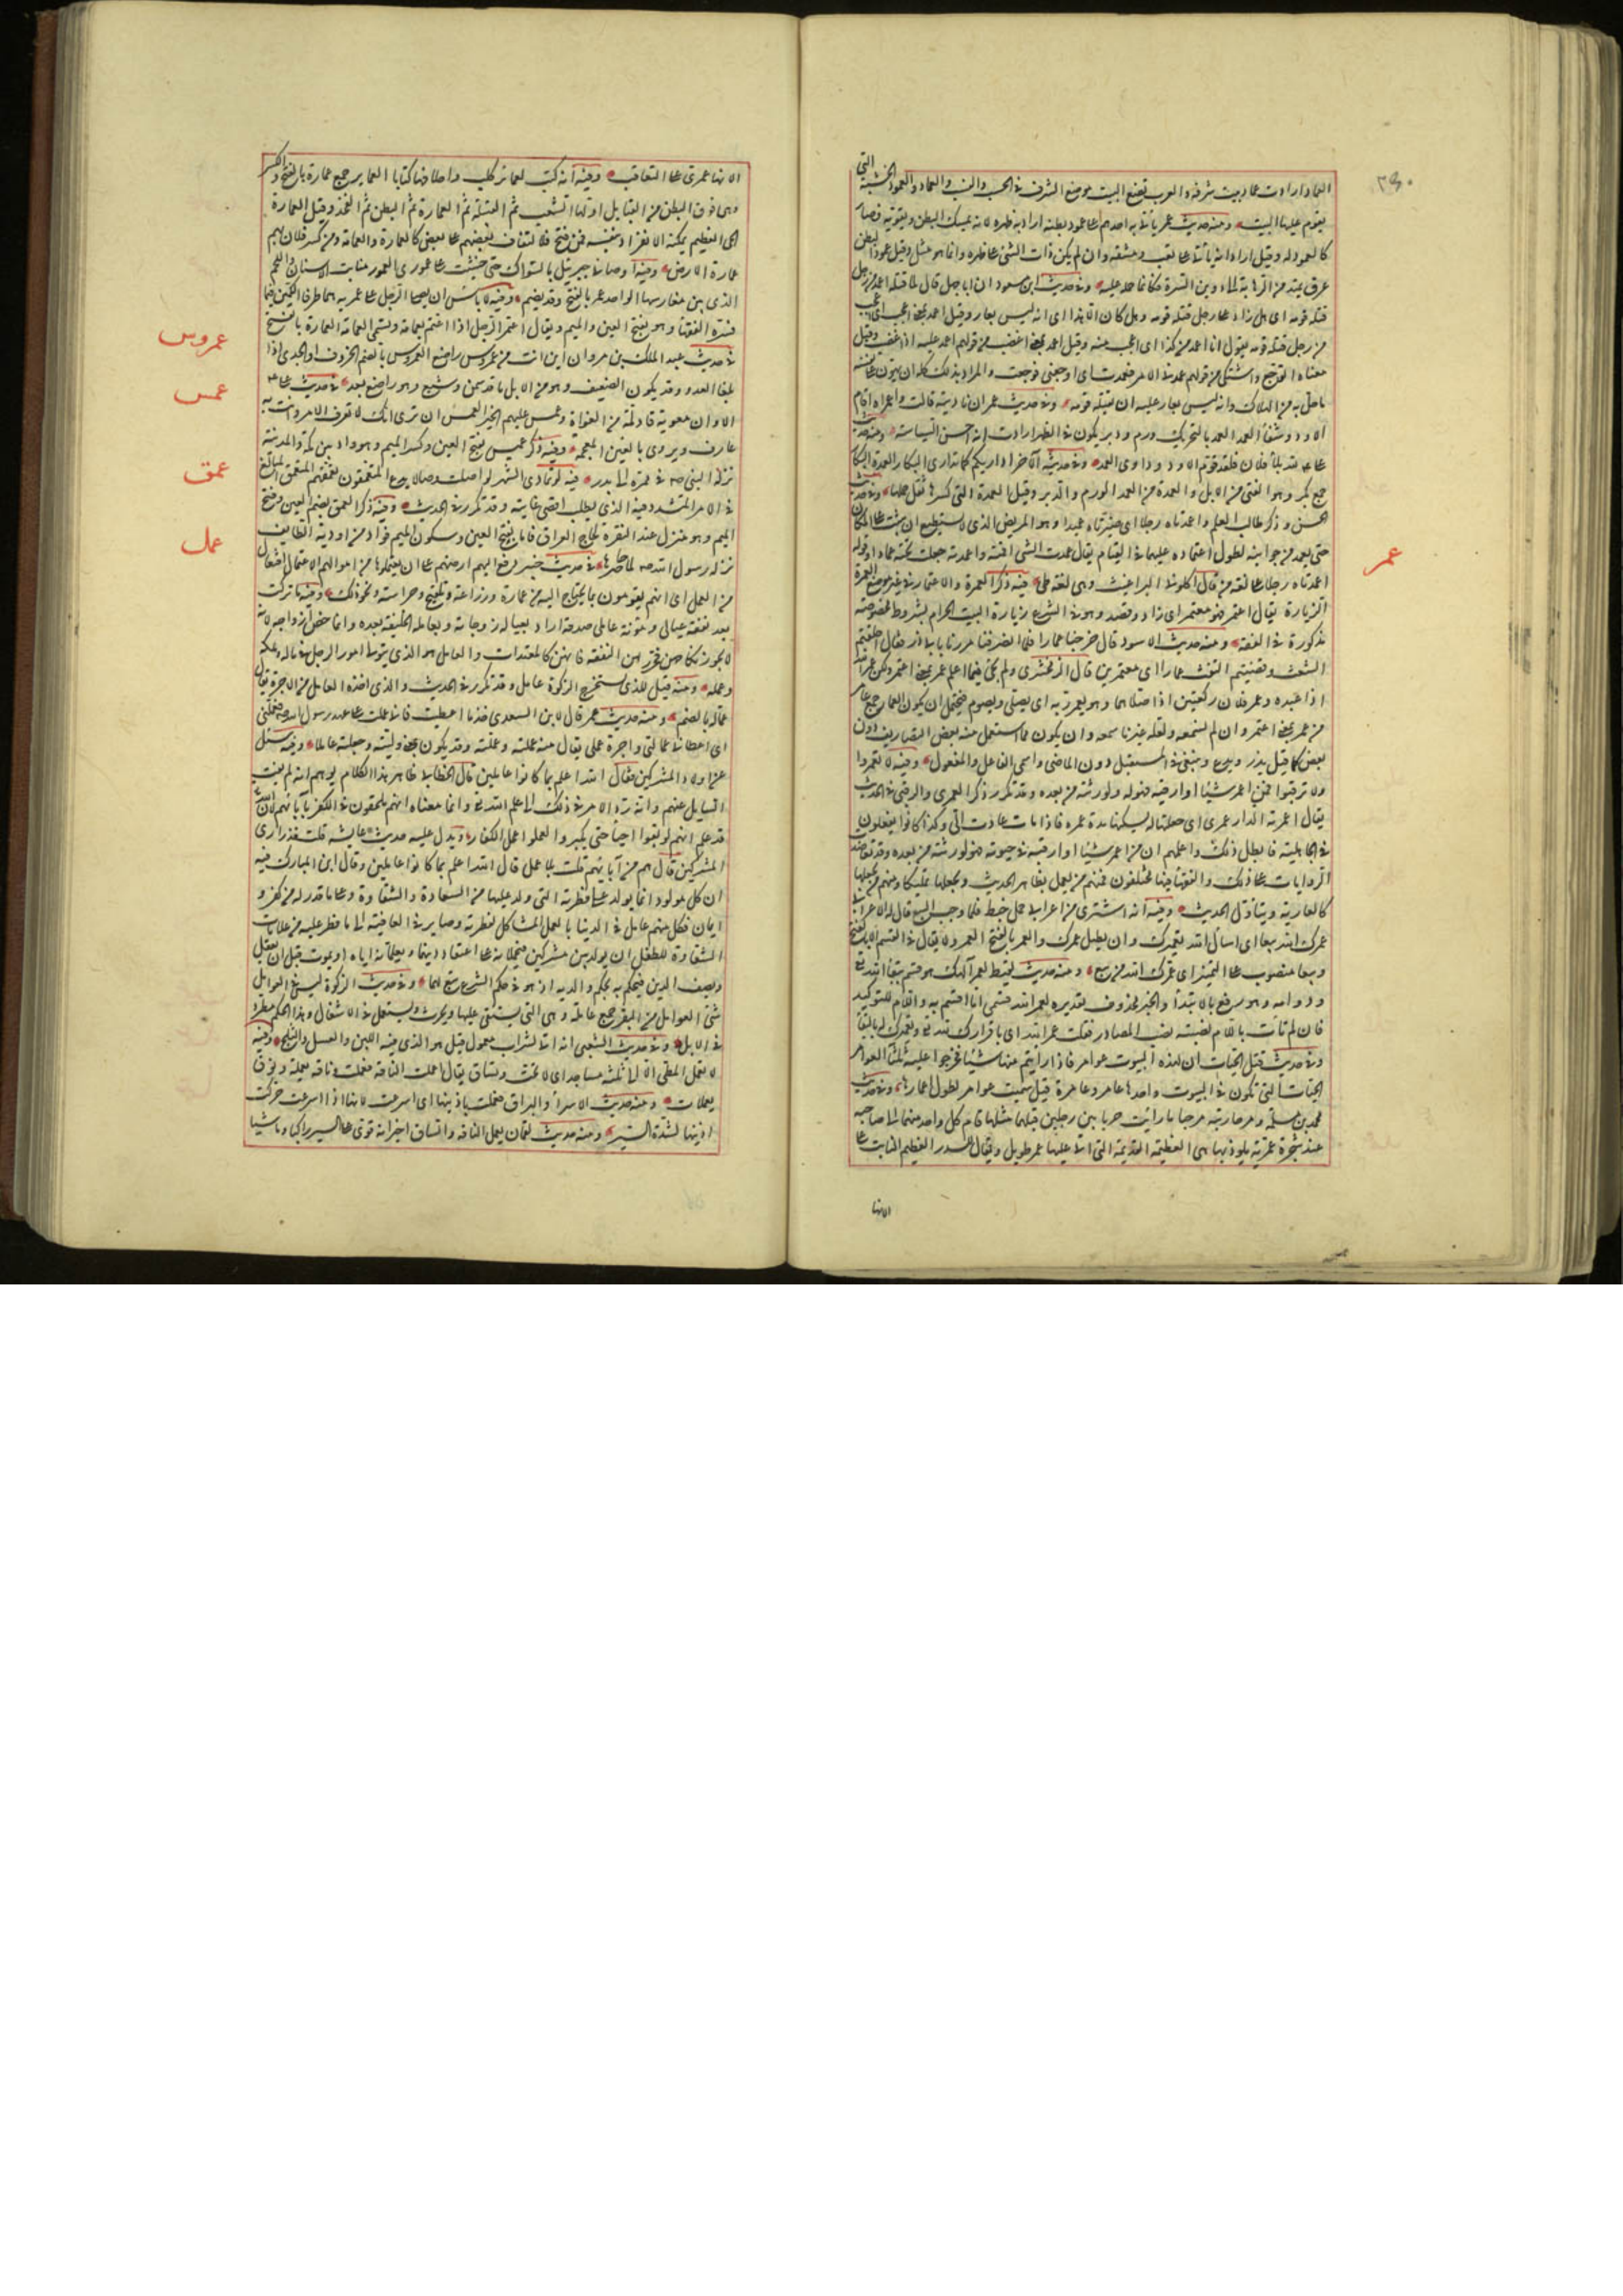 العماد ارادت عماد بيت شرفه والعرب تضع البيت موضع الشرف في الحسب والنسب والعماد والعمود الخشبة التي
يقوم عليها البيت ومنه حديث عمر يأتي به احدهم على عمود بطنه اراد به ظهره لانه يمسك البطن ويقويه فصار
كالعمود له وقيل اراد انه يأتي به على تعب ومشقة وان لم يكن ذلك الشئ على ظهره وانما هو مثل وقيل عمود البطن
عرق يمتد من الرهابة الى دوين السرة فكانما حمله عليه وفي حديث ابن مسعود ان اباجهل قال لما قتله اعمد من رجل
قتله قومه اى هل زاد على رجل قتله قومه وهل كان الا هذا اى انه ليس بعار وقيل اعمد بمعنى اعجب اى اعجب
من رجل قتله قومه يقول انا اعمد من كذا اى اعجب منه وقيل اعمد بمعنى اغضب من قولهم عمد عليه اذا غضب وقيل
معناه اتوجع واشتكى من قولهم عمدني الامر فعمدت اى اوجعني فوجعت والمراد بذلك كله ان يهون على نفسه
ما حل به من الهلاك وانه ليس بعار عليه ان يقتله قومه وفي حديث عمر ان نادبته قالت واعمراه اقام
الاود وشفى العمد العمد بالتحريك ورم ودبر يكون في الظهر ارادت انه احسن السياسة ومنه حديث
على لله بلاء فلان فلقد قوم الاود وداوى العمد وفي حديثه الآخر اداريكم كما تدارى البكار العمدة البكار
جمع بكر وهو الفتى من الابل والعمدة من العمد الورم والدبر وقيل العمدة التي كسرها ثقل حملها وفي حديث
الحسن وذكر طالب العلم واعمدتاه رجلاه اى صيرتاه عميدا وهو المريض الذي لا يستطيع ان يثبت على المكان
حتى يعمد من جوانبه لطول اعتماده عليهما في القيام يقال عمدت الشئ اقمته واعمدته جعلت تحته عمادا وقوله
اعمدتاه رجلاه على لغة من قال اكلوني البراغيث وهى لغة طى فيه ذكر العمرة والاعتمار في غير موضع العمرة
الزيارة يقال اعتمر فهو معتمر اى زار وقصد وهو في الشرع زيارة البيت الحرام بشروط مخصوصة
مذكورة في الفقه ومنه حديث الاسود قال خرجنا عمارا فلما انصرفنا مررنا بابى ذر فقال احلقتم
الشعث وقضيتم التفث عمارا اى معتمرين قال الزمخشرى ولم يجئ فيما اعلم عمر بمعنى اعتمر ولكن عمر الله
اذا عبده وعمر فلان ركعتين اذا صلاهما وهو يعمر ربه اى يصلى ويصوم فيحتمل ان يكون العمار جمع عامر
من عمر بمعنى اعتمر وان لم نسمعه ولعله غيرنا سمعه وان يكون مما استعمل منه بعض التصاريف دون
بعض كما قيل يذر ويدع وينبغى في المستقبل دون الماضى واسمى الفاعل والمفعول وفيه لا تعمروا
ولا ترقبوا فمن اعمر شيئا او ارقبه فهو له ولورثته من بعده وقد تكرر ذكر العمرى والرقبى في الحديث
يقال اعمرته الدار عمرى اى جعلتها له يسكنها مدة عمره فاذا مات عادت الى وكذا كانوا يفعلون
في الجاهلية فابطل ذلك واعلمهم ان من اعمر شيئا او ارقبه في حيوته فهو لورثته من بعده وقد تعاضدت
الروايات على ذلك والفقهاء فيها مختلفون فمنهم من يعمل بظاهر الحديث ويجعلها تمليكا ومنهم من يجعلها
كالعارية ويتأول الحديث وفيه انه اشترى من اعرابى حمل خبط فلما وجب البيع قال له الاعرابى
عمرك الله بيعا اى اسأل الله تعميرك وان يطيل عمرك والعمر بالفتح العمر ولا يقال في القسم الا بالفتح
وبيعا منصوب على التمييز اى عمرك الله من بيع ومنه حديث لقيط لعمر الهك هو قسم ببقاء الله تع
ودوامه وهو رفع بالابتدأ والخبر محذوف تقديره لعمر الله قسمى او ما اقسم به واللام للتوكيد
فان لم تأت باللام نصبته نصب المصادر فقلت عمر الله اى باقرارك لله تع وتعميرك له بالبقاء
وفي حديث قتل الحيات ان لهذه البيوت عوامر فاذا رايتم منها شيئا فحرجوا عليه ثلثا العوامر
الحيات التي تكون في البيوت واحدها عامر وعامرة قيل سميت عوامر لطول اعمارها وفي حديث
محمد بن مسلمة ومحاربته مرحبا ما رايت حربا بين رجلين قبلهما مثلها قام كل واحد منهما الى صاحبه
عند شجرة عمرية يلوذ بها هى العظيمة القديمة التي اتى عليها عمر طويل ويقال للسدر العظيم النابت على
الانها
عمر
الانهار عمرى على التعاقب وفيه انه كتب لعمائر كلب واحلافها كتابا العماير جمع عمارة بالفتح والكسر
وهى فوق البطن من القبايل اولها الشعب ثم القبيلة ثم العمارة ثم البطن ثم الفخذ وقيل العمارة
الحى العظيم يمكنه الانفراد بنفسه فمن فتح فلالتفاف بعضهم على بعض كالعمارة والعمامة ومن كسر فلان بهم
عمارة الارض وفيه اوصانى جبرئيل بالسواك حتى خشيت على عمورى العمور منابت الاسنان واللحم
الذى بين مغارسها الواحد عمر بالفتح وقد يضم وفيه لا باس ان يصلى الرجل على عمريه هما طرفا الكمين فيما
فسره الفقهاء وهو بفتح العين والميم ويقال اعتمر الرجل اذا اعتم بعمامة وتسمى العمامة العمارة بالفتح
في حديث عبد الملك بن مروان اين انت من عمروس راضع العمروس بالضم الخروف او الجدى اذا
بلغا العدو وقد يكون الضعيف وهو من الابل ما قد سمن وشبع وهو راضع بعد في حديث على
الا وان معوية قاد لمة من الغواة وعمس عليهم الخبر العمس ان ترى انك لا تعرف الامر وانت به
عارف ويروى بالغين المعجمة وفيه ذكر عميس بفتح العين وكسر الميم وهو واد بين مكة والمدينة
نزله النبى صه في ممره الى بدر فيه لو تمادى الشهر لواصلت وصالا يدع المتعمقون تعمقهم المتعمق المبالغ
في الامر المتشدد فيه الذى يطلب اقصى غايته وقد تكرر في الحديث وفيه ذكر العمق بضم العين وفتح
الميم وهو منزل عند النقرة لحاج العراق فاما بفتح العين وسكون الميم فواد من اودية الطايف
نزله رسول الله صه لما حاصرها في حديث خيبر دفع اليهم ارضهم على ان يعتملوها من اموالهم الاعتمال افتعال
من العمل اى انهم يقومون بما يحتاج اليه من عمارة وزراعة وتلقيح وحراسة ونحو ذلك وفيه ما تركت
بعد نفقة عيالى ومؤنة عاملى صدقة اراد بعياله زوجاته وبعامله الخليفة بعده وانما خص ازواجه لانه
لا يجوز نكاحهن فجرت لهن النفقة فانهن كالمعتدات والعامل هو الذي يتولى امور الرجل في ماله وملكه
وعمله ومنه قيل للذى يستخرج الزكوة عامل وقد تكرر في الحديث والذى ياخذه العامل من الاجرة يقال
عمالة بالضم ومنه حديث عمر قال لابن السعدى خذ ما اعطيت فانى عملت على عهد رسول الله صه فعملنى
اى اعطانى عمالتى واجرة عملى يقال منه عملته وعملته وقد يكون بمعنى وليته وجعلته عاملا وفيه سئل
عن اولاد المشركين فقال الله اعلم بما كانوا عاملين قال الخطابى ظاهر هذا الكلام يوهم انه لم يفت
السايل عنهم وانه رد الامر في ذلك الى علم الله تع وانما معناه انهم ملحقون في الكفر بآبائهم لان الله
قد علم انهم لو بقوا احياء حتى يكبروا لعملوا عمل الكفار ويدل عليه حديث عايشة قلت فذرارى
المشركين قال هم من آبائهم قلت بلا عمل قال الله اعلم بما كانوا عاملين وقال ابن المبارك فيه
ان كل مولود انما يولد على فطرته التى ولد عليها من السعادة والشقاوة وعلى ما قدر له من كفر و
ايمان فكل منهم عامل في الدنيا بالعمل المشاكل لفطرته وصاير في العاقبة الى ما فطر عليه فمن علامات
الشقاوة للطفل ان يولد بين مشركين فيحملانه على اعتقاد دينهما ويعلمانه اياه او يموت قبل ان يعقل
ويصف الدين فيحكم له بحكم والديه اذ هو في حكم الشرع تبع لهما وفي حديث الزكوة ليس في العوامل
شئ العوامل من البقر جمع عاملة وهى التى يستقى عليها ويحرث وتستعمل في الاشغال وهذا الحكم مطرد
في الابل وفي حديث الشعبى انه اتى بشراب معمول قيل هو الذى فيه اللبن والعسل والثلج وفيه
لا تعمل المطى الا الى ثلثة مساجد اى لا تحث وتساق يقال اعملت الناقة فعملت وناقة يعملة ونوق
يعملات ومنه حديث الاسراء والبراق فعملت باذنيها اى اسرعت لانها اذا اسرعت حركت
اذنيها لشدة السير ومنه حديث لقمان يعمل الناقة والساق اخبر انه قوى على السير راكبا وماشيا
عمروس
عمس
عمق
عمل